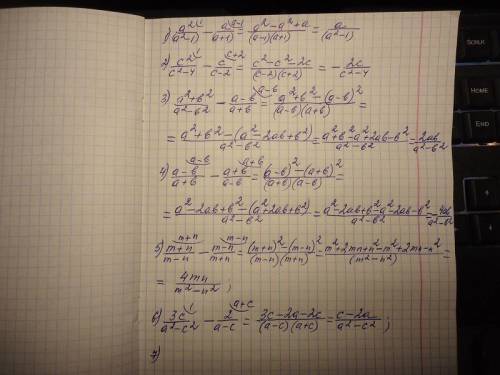 1) a²/(a²-1) \1 - a/(a+1) \a-1 = (a²-a²+a)/((a-1)(a+1)) = a/(a²-1)
2) c²/(c²-4) \1 - c/(c-2) \c+2 = (c²-c²-2c)/((c-2)(c+2)) = - 2c/(c²-4)
3) (a²+b²)/(a²-b²) - (a-b)/(a+b) \a-b = (a²+b²-(a-b)²)/((a-b)(a+b)) =
= (a²+b²-(a²-2ab+b²))/(a²-b²) = (a²+b²-a²+2ab-b²)/(a²-b²) = 2ab/(a²-b²)
4) (a-b)/(a+b) \a-b - (a+b)/(a-b) \a+b = ((a-b)²-(a+b)²)/((a+b)(a-b)) =
= (a²-2ab+b²-(a²+2ab+b²))/(a²-b²) = (a²-2ab+b²-a²-2ab-b²)/(a²-b²) = -4ab/(a²-b²)
5) (m+n)/(m-n) \m+n - (m-n)/(m+n) \m-n = ((m+n)²-(m-n)²)/((m-n)(m+n)) = (m²+2mn+n²-m²+2mn-n²)/(m²-n²) =
= 4mn/(m²-n²) ;
6) 3c/(a²-c²) \1 - 2/(a-c) \a+c = (3c-2a-2c)/((a-c)(a+c)) = (c-2a)/(a²-c²) ;
7)
Home
End